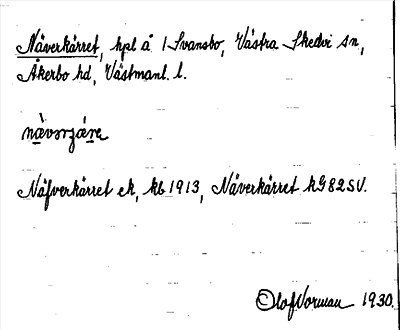 Näverkärret, hpl å 1 Svansbo, Västra Skedvi sn,
Åkerbo hd, Västmanl. l.
Näfverkärret ek, kb 1913, Näverkärret hG 82 SV.
Olof Norman 1930.